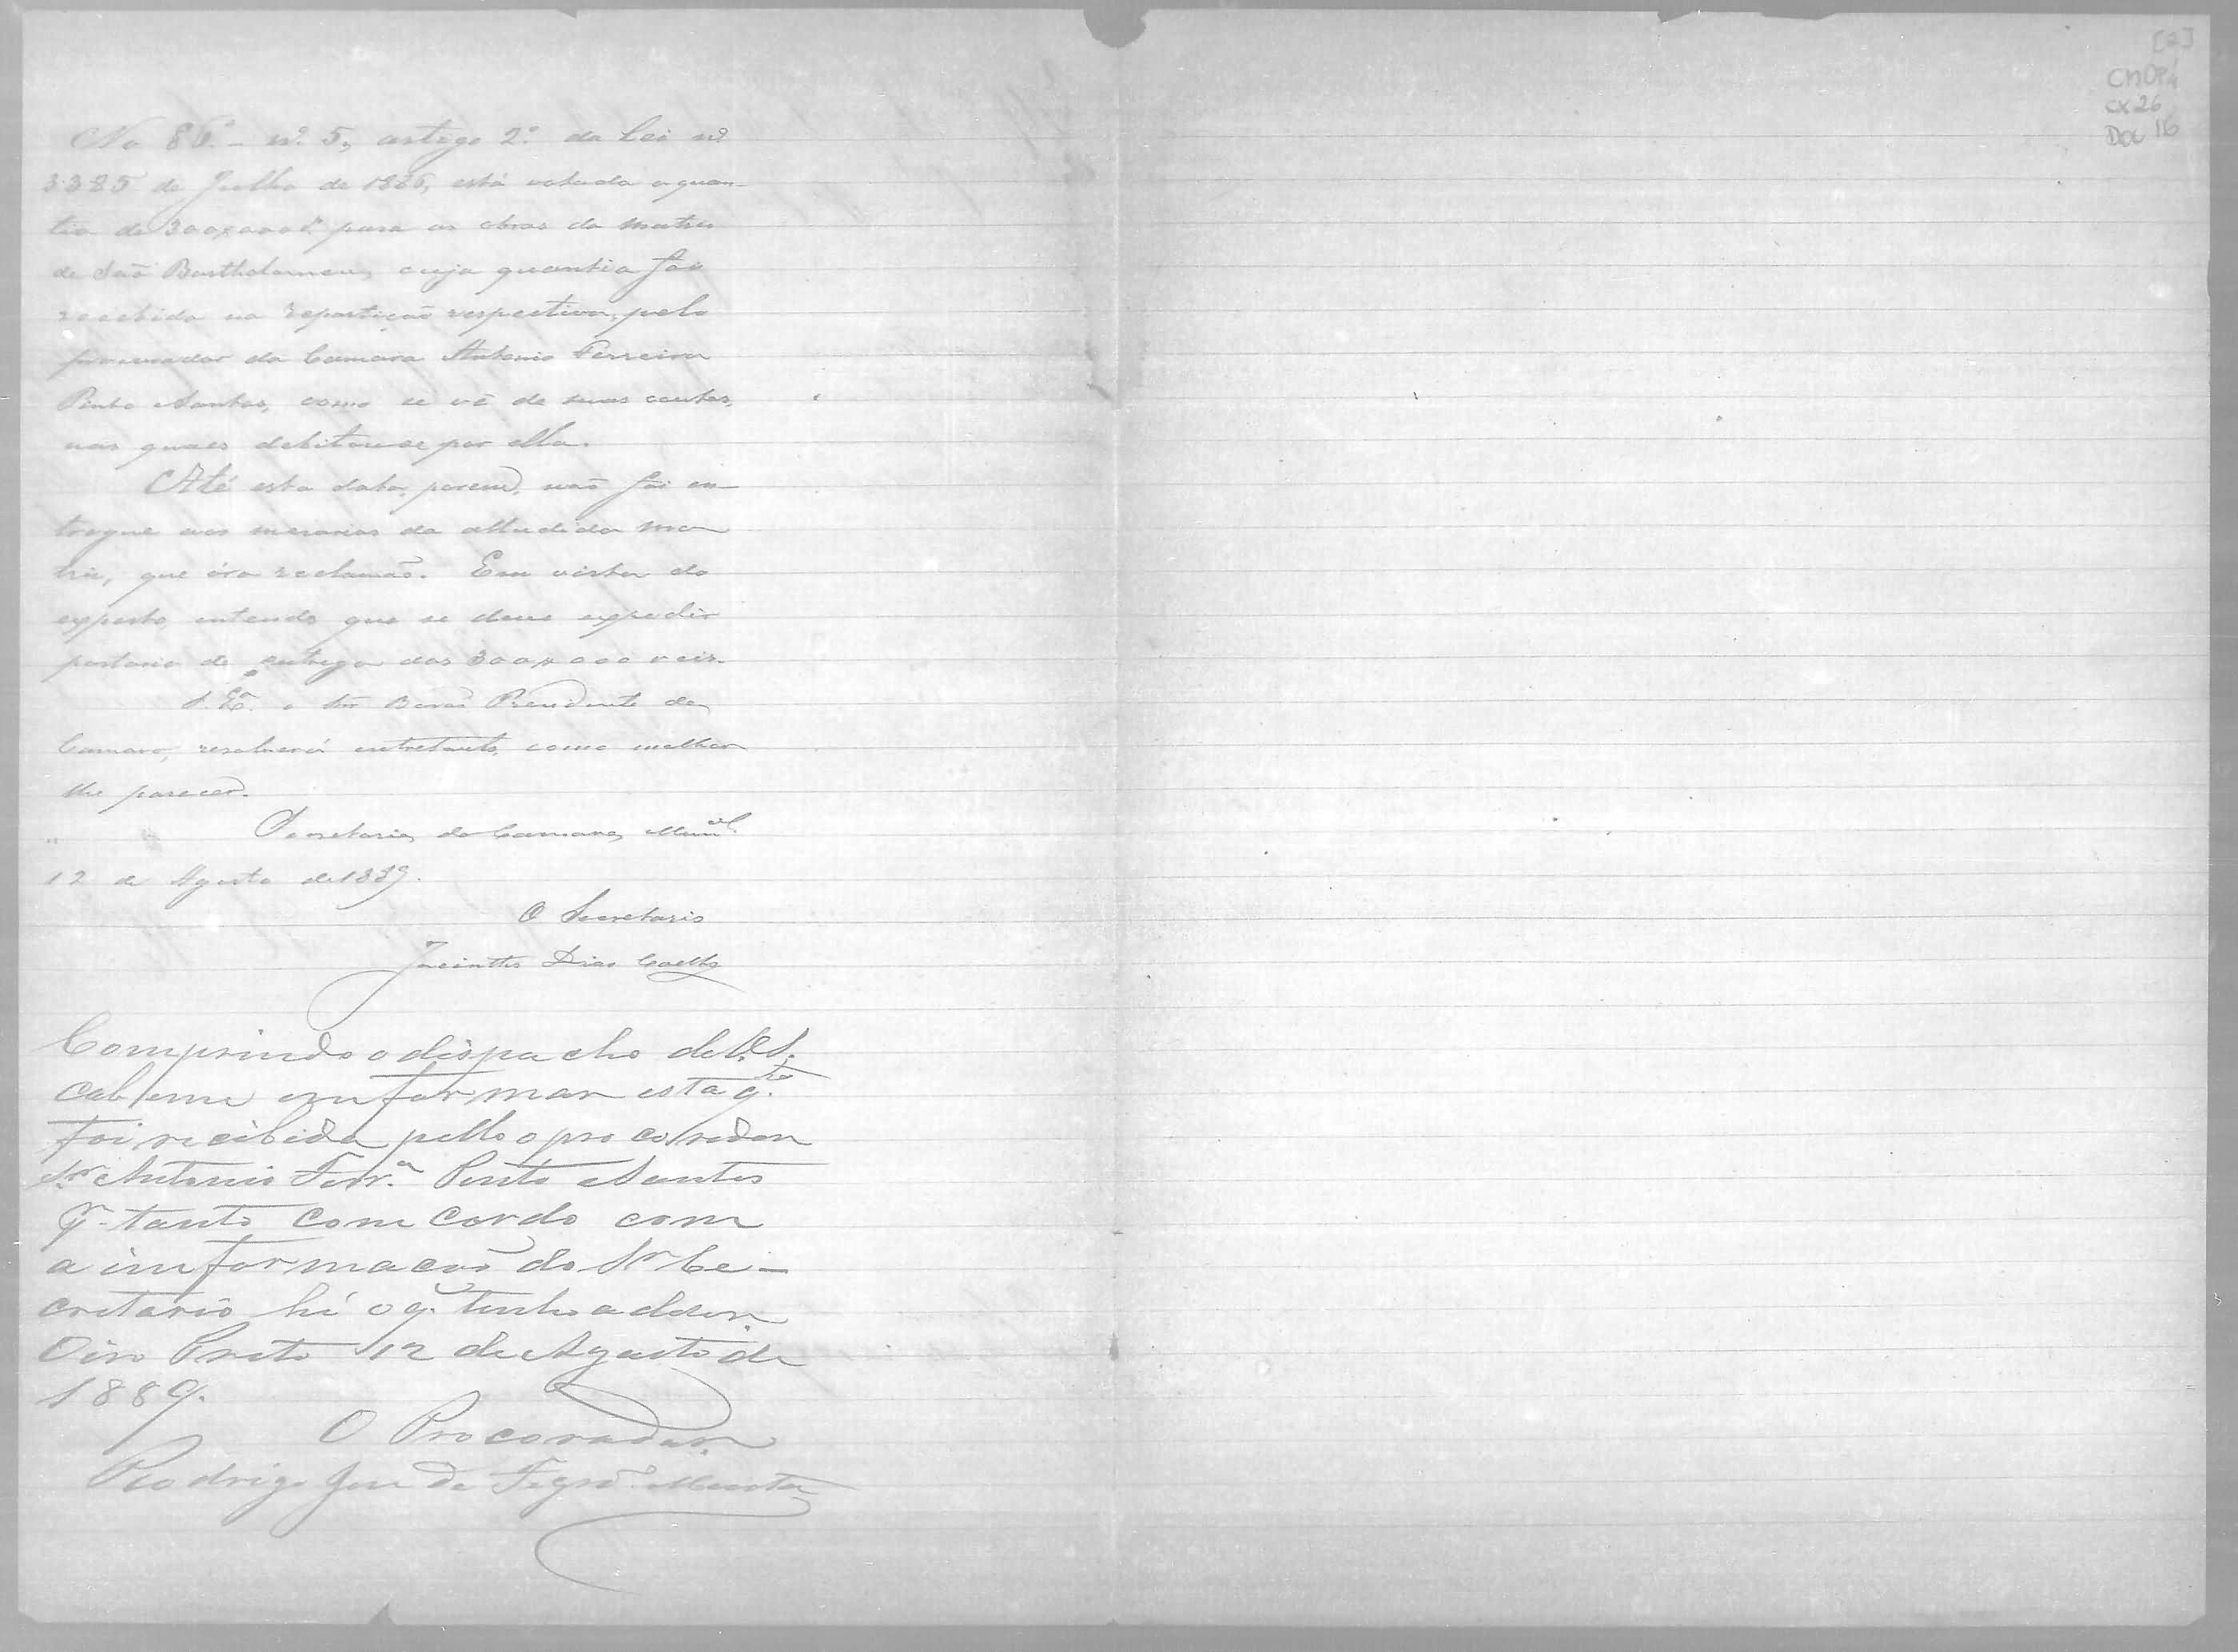 [2]
CMOP
CX 26
Doc 16
No § 6.º - n.º 5, artigo 2.º da Lei nº
3385 de Julho de 1886, está votada a quan-
tia de 300$000 rs para as obras da matriz
de São Bartholomeu, cuja quantia foi
recebida na repartição respectiva, pelo
procurador da Camara Antonio Ferreira
Pinto Santos, como se vê de suas contas,
nas quaes debitou-se por ella.
Até esta data, porem, não foi en-
tregue aos mesarios da alludida ma
triz, que óra reclamão. Em vista do
exposto, entendo que se deve expedir
portaria de entrega dos 300$000 reis.
S. Exª. o Snr Barão Presidente da
Camara, resolverá entretanto, como melhor
lhe parecer.
Secretaria da Camara Munal
12 de Agosto de 1889.
O Secretario
Jacintho Dias Coelho
Comprindo o dispacho de V.S.
cabeme emformar esta q.ta
foi recibida pello o procorador
Sr. Antonio Ferr.ª Pinto Santos
p.r tanto comcordo com
a imformacaõ do Sr Ce-
cretario hé o q. tenho a dizer.
Oiro Preto 12 de Agosto de
1889.
O Procorador.
Rodrigo José de Figrdo. Murta